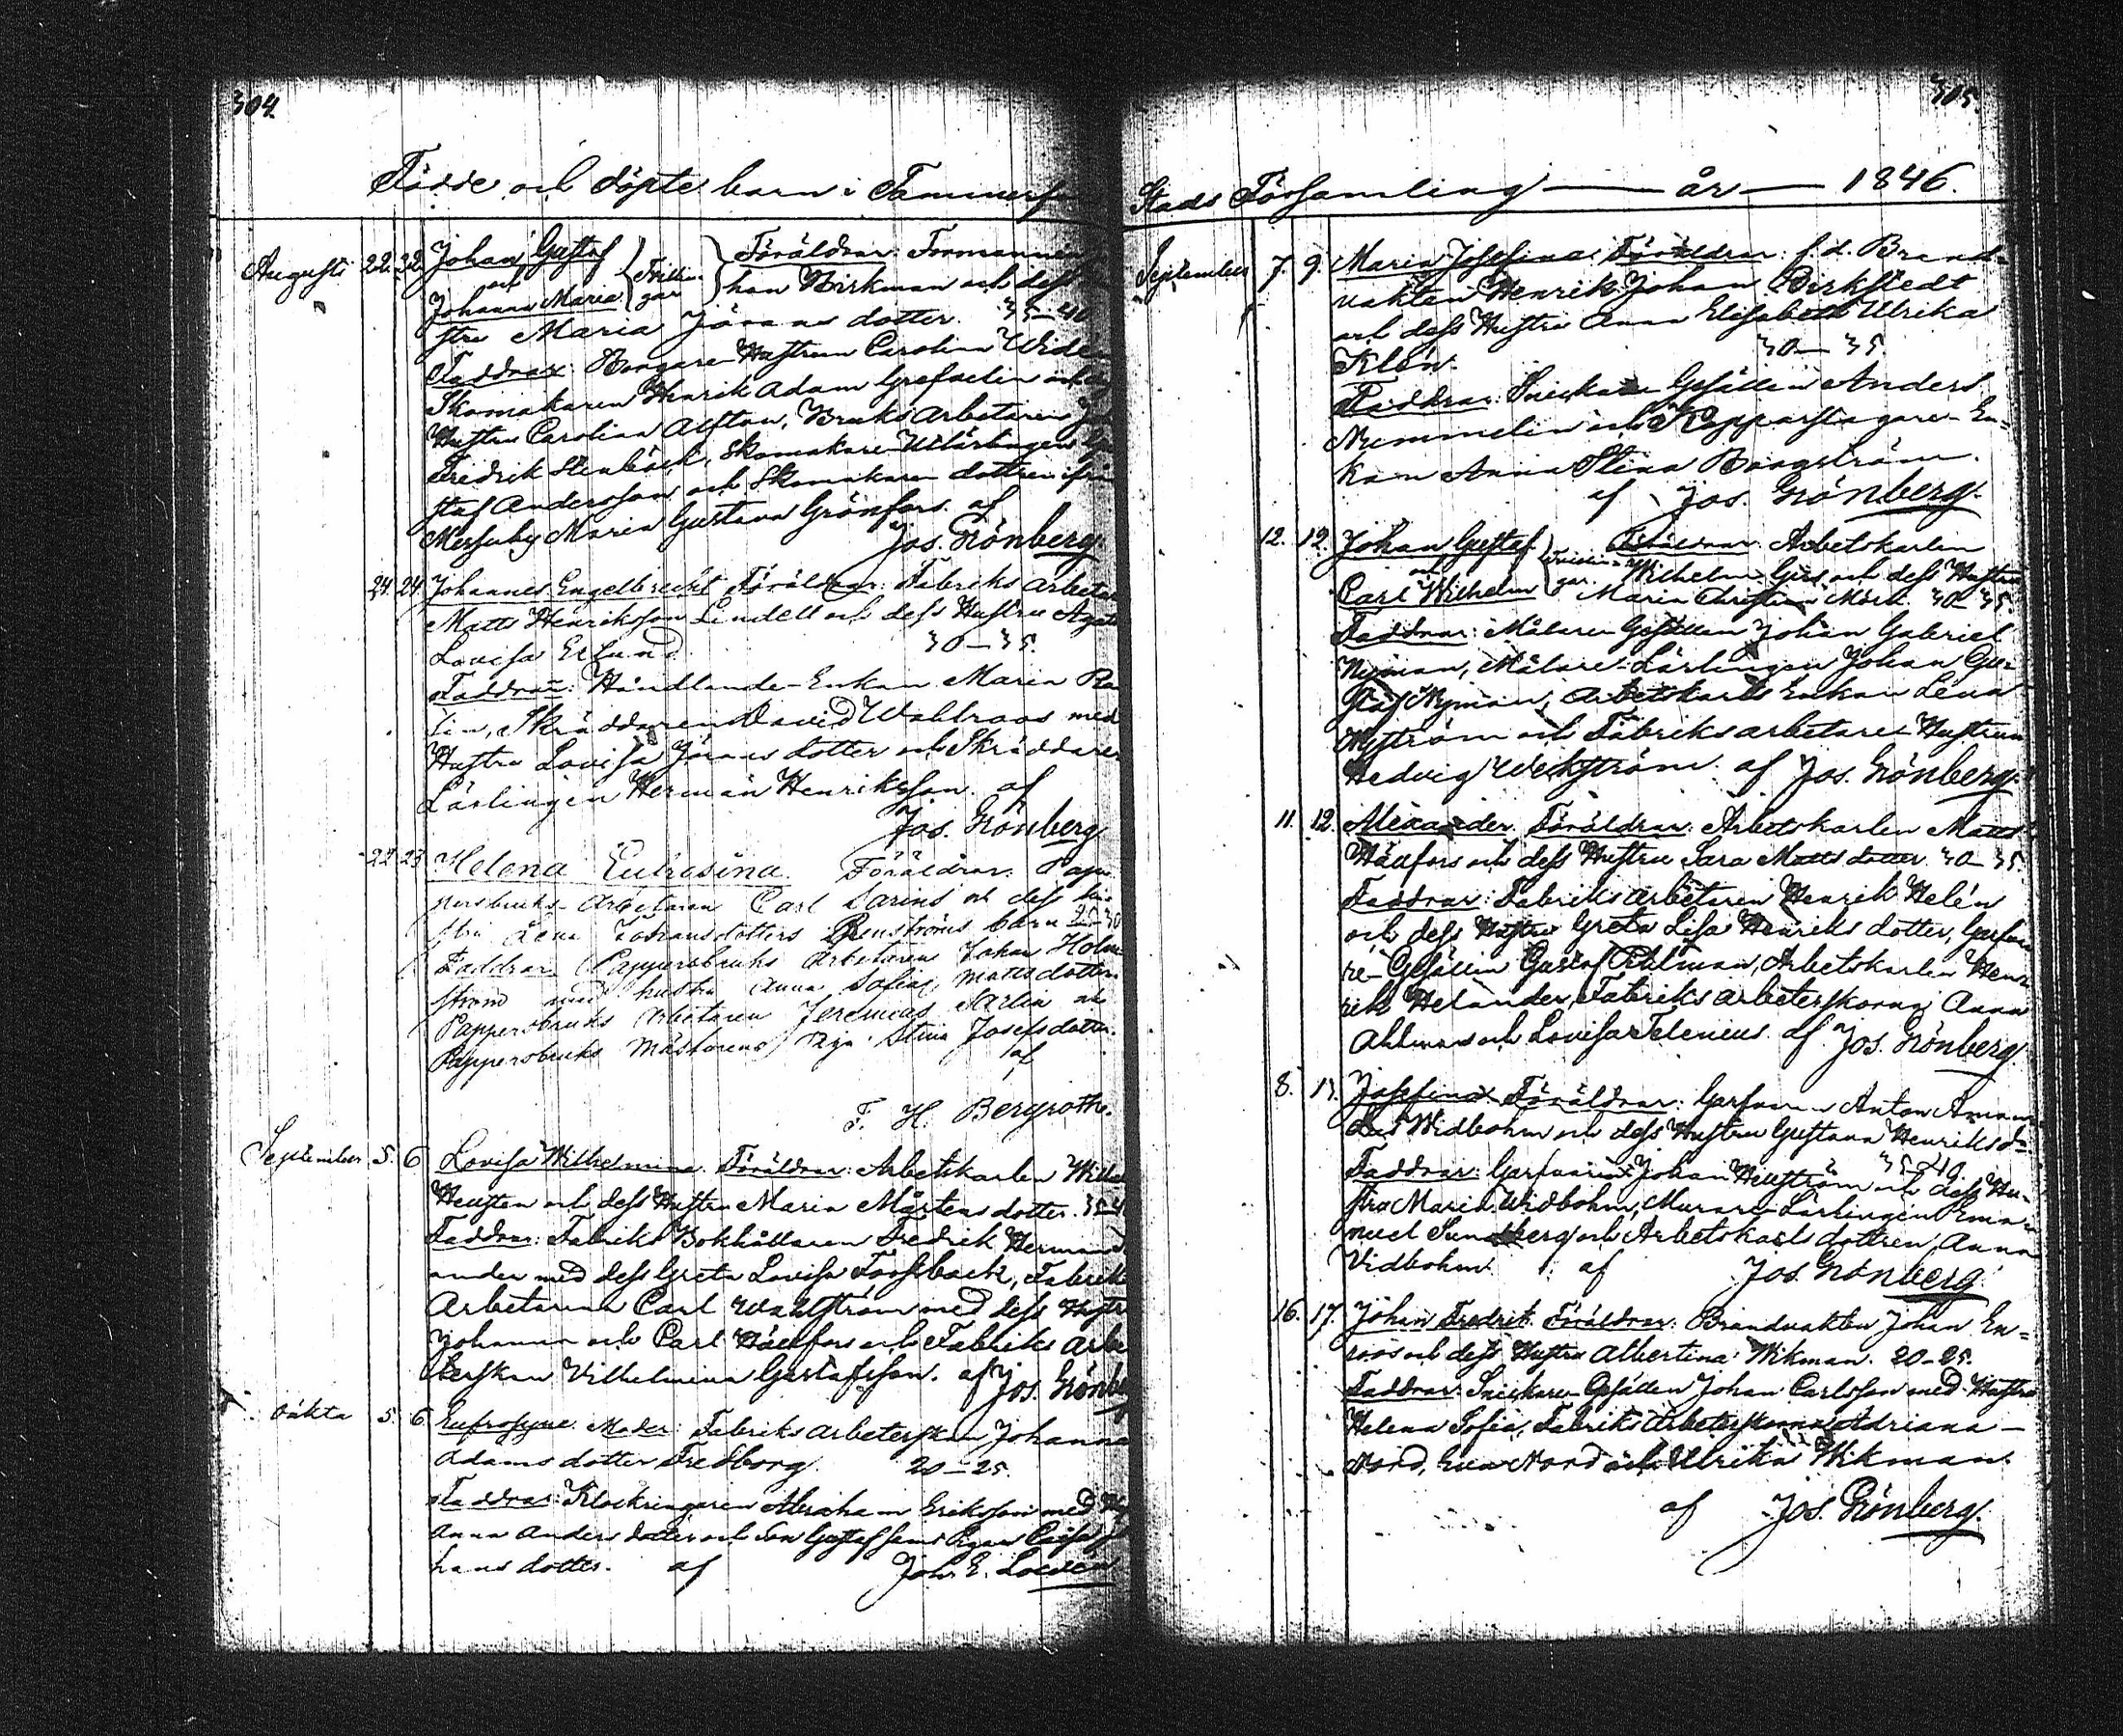 304
Födde och döpte barn i Tammerf
Augusti 22. 22. Johan Gustaf
och
Johanna Maria
Tvillin-
gar
Föräldrar: Formannen
han Birkman och dess
stru Maria Jörans dotter. 35-40
Faddrar: Borgare-Hustrun Carolina Widén
Skomakaren Henrik Adam Grefvelin och
Hustru Carolina Alftan, Bruks Arbetaren
Fredrik Stenbäck, Skomakare-Utlärlingen
staf Andersson och Skomakare dottren ifrån
Messuby Maria Gustava Grönfors. af
Jos. Grönberg.
24. 24. Johannes Engelbrecht Föräldrar: Fabriks Arbeta
Matts Henriksson Lindell och dess Hustru Agata
Lovisa Eklund 30-35.
Faddrar: Handlande-Enkan Maria
lin, Skräddaren David Wahlroos med
Hustru Lovisa Jörans dotter och Skräddare
Lärlingen Herman Henriksson. af
Jos. Grönberg
22 23 Helena Eufrosina. Föräldrar: Pap
persbruks-Arbetaren Carl Sarins och dess hu
stru Lena Göransdotters barn 25-30
Faddrar: Pappersbruks Arbetaren Johan Holm
ström med hustru Anna Sofia Matts dotter
Pappersbruks Arbetaren Jeremias Sarlin och
Pappersbruks Mästarens Piga Stina Josefsdotter.
af
F. H. Bergroth.
September 5. 6 Lovisa Wilhelmina. Föräldrar: Arbetskarlen Wilhe
och dess Hustru Maria Mårtens dotter. 35-4
Faddrar: Fabriks Bokhållaren Fredrik Herman
ander med dess Greta Lovisa Forsback, Fabriks
Arbetarene Carl Wahlström med dess Hustr
Johanna och Carl Hällfors och Fabriks Arbe
terskan Vilhelmina Gustafsson. af Jos. Grönbe
oäkta 5. 6 Eufrosyne. Moder: Fabriks arbeterskan Johanna
Adams dotter Fredborg. 20-25.
Faddrar: Klockringaren Abraham Eriksson med
Anna Anders dotter och son Gustaf samt Pigan
hans dotter. af Joh. E.
305.
Stads Församling — år — 1846.
September 7. 9. Maria Josefina. Föräldrar: f.d. Brand-
vakten Henrik Johan Birkstedt
och dess Hustru Anna Elisabeth Ulrika
Klén. 30-35.
Faddrar: Snickare Gesällen Anders
Nummelin och Kopparslagare-En-
kan Anna Stina Bongström.
af Jos. Grönberg.
12. 12. Johan Gustaf
och
Carl Wilhelm
Tvillin-
gar.
Föräldrar: Arbetskarlen
Wilhelm Girs och dess Hustru
Maria Christina Mörk. 30-35.
Faddrar: Målare Gesällen Johan Gabriel
Nyman, Målare-Lärlingen Johan Gu-
staf Nyman, Arbetskarls Enkan Lena
Nyström och Fabriksarbetare-Hustrun
Hedvig Wekström. af Jos. Grönberg.
11. 12. Alexander. Föräldrar: Arbetskarlen Matts
Hällfors och dess Hustru Sara Matts dotter. 30-35.
Faddrar: Fabriks Arbetaren Henrik Helén
och dess Hustru Greta Lisa Henriks dotter, Garfva
re-Gesällen Gustaf Pihlman, Arbetskarlen Hen-
rik Helander, Fabriks arbeterskorna Anna
Ahlman och Lovisa Telenius. af Jos. Grönberg.
8. 13. Josefina. Föräldrar: Garfvaren Anton Aman-
dus Widbohm och dess Hustru Gustava Henriksd:r
35-40.
Faddrar: Garfvaren Johan Hellström och dess Hu-
stru Maria Widbohm, Murare-Lärlingen Ema-
nuel Sundberg och Arbetskarls dottren Anna
Vidbohm. af Jos. Grönberg
16. 17. Johan Fredrik. Föräldrar: Brandvakten Johan En-
roos och dess Hustru Albertina Wikman. 20-25.
Faddrar: Snickare-Gesällen Johan Carlsson med Hustru
Helena Sofia, Fabriks Arbeterskorna Adriana —
Nord, Eva Nord och Ulrika Wikman.
af Jos. Grönberg.